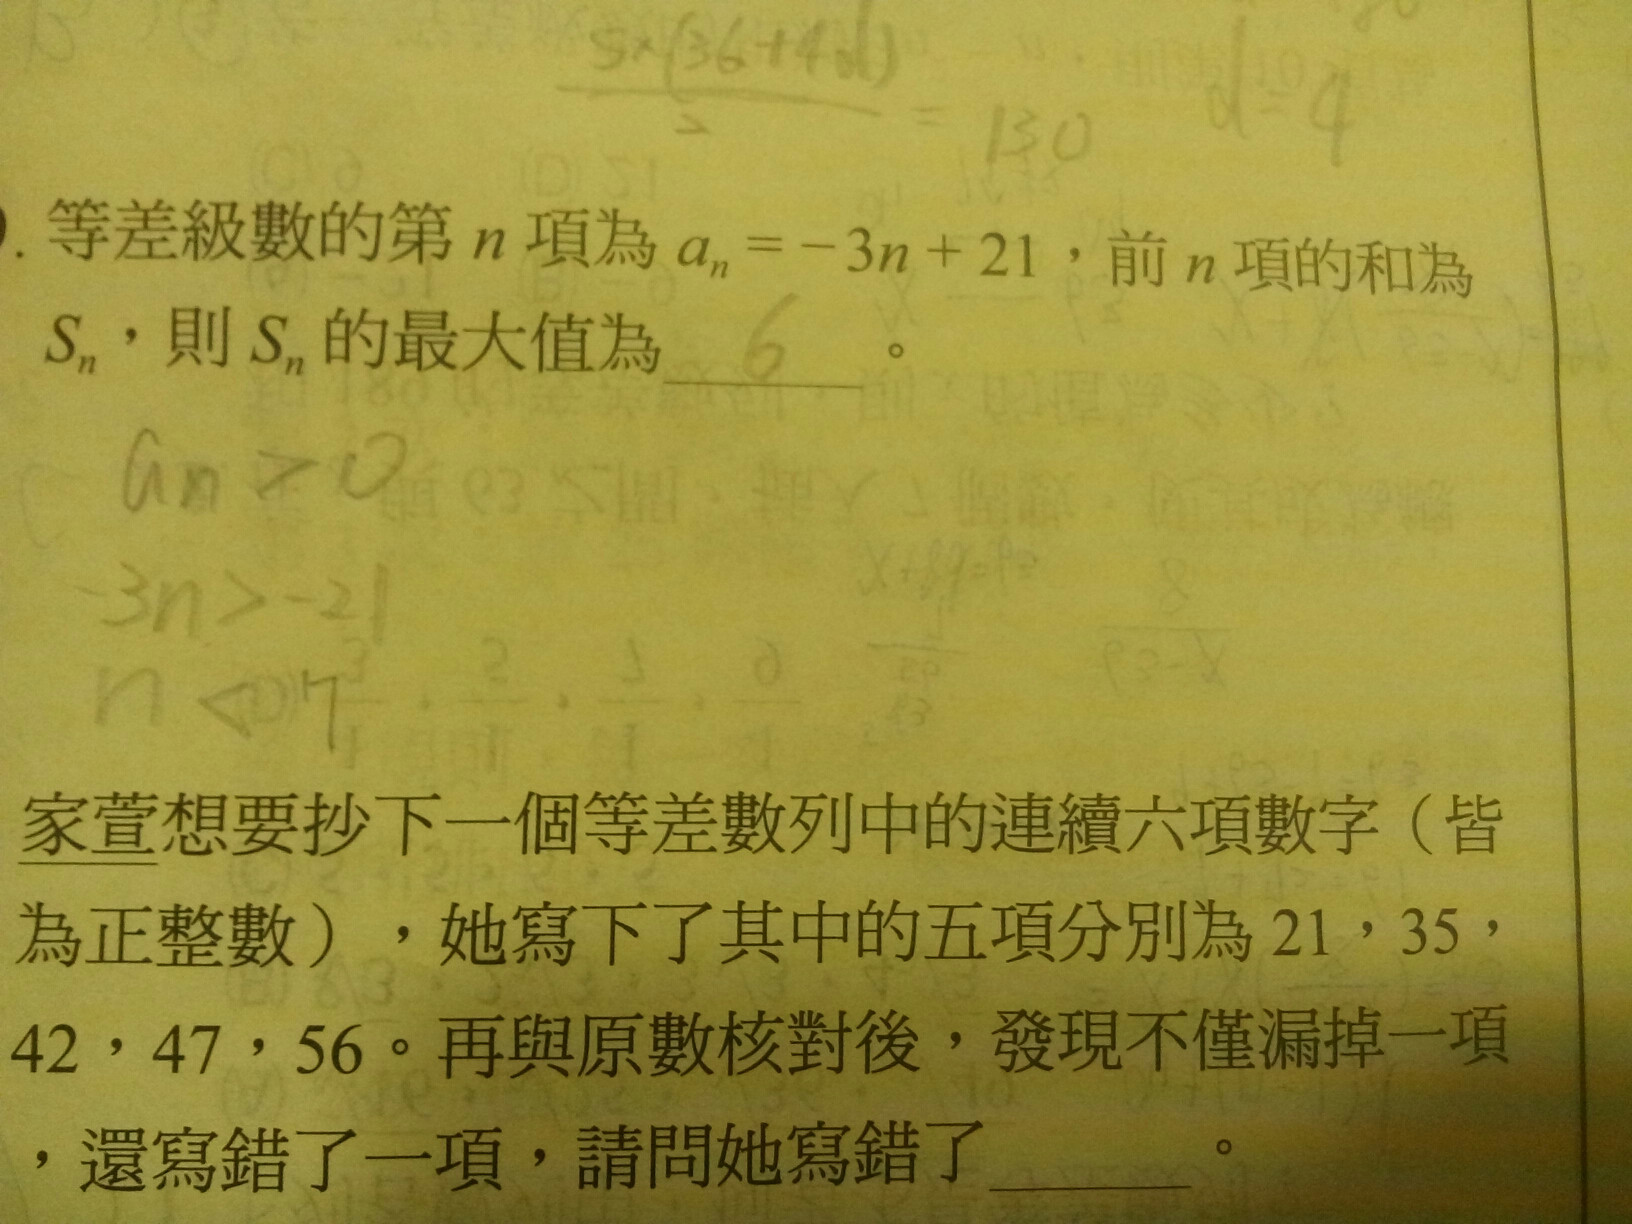 5×(36+4d)
2
= 130
d=4
. 等差級數的第 n 項為 aₙ = −3n + 21，前 n 項的和為
Sₙ，則 Sₙ 的最大值為 6 。
an > 0
-3n > -21
n < 7
家萱想要抄下一個等差數列中的連續六項數字（皆
為正整數），她寫下了其中的五項分別為 21，35，
42，47，56。再與原數核對後，發現不僅漏掉一項
，還寫錯了一項，請問她寫錯了＿＿＿。